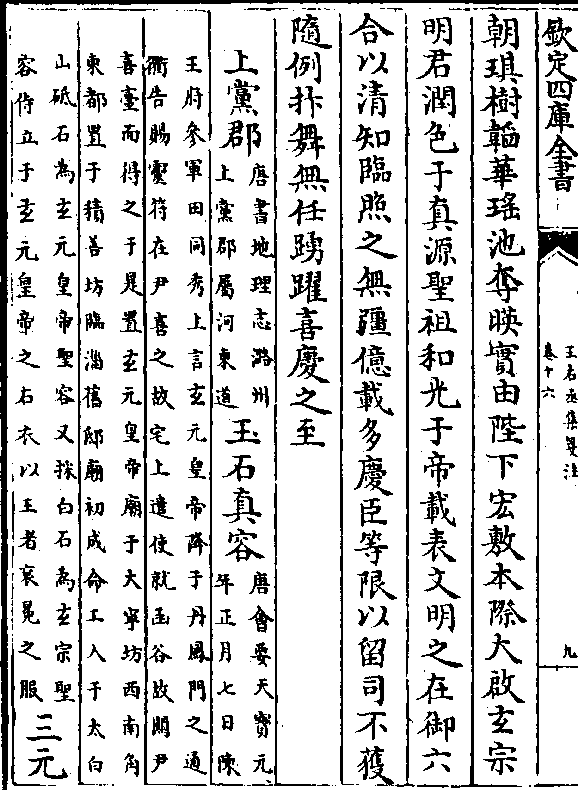 欽定四庫全書
王右丞集箋注
卷十六
九
朝琪樹韜華瑤池奪暎實由陛下宏敷本際大啟玄宗
明君潤色于真源聖祖和光于帝載表文明之在御六
合以清知臨照之無疆億載多慶臣等限以留司不獲
隨例抃舞無任踴躍喜慶之至
上黨郡
唐書地理志潞州
上黨郡屬河東道
玉石真容
唐會要天寶元
年正月七日陳
王府參軍田同秀上言玄元皇帝降于丹鳳門之通
衢告賜靈符在尹喜之故宅上遣使就函谷故關尹
喜臺而得之于是置玄元皇帝廟于大寧坊西南角
東都置于積善坊臨淄舊邸廟初成命工人于太白
山砥石為玄元皇帝聖容又採白石為玄宗聖
容侍立于玄元皇帝之右衣以王者袞冕之服
三元